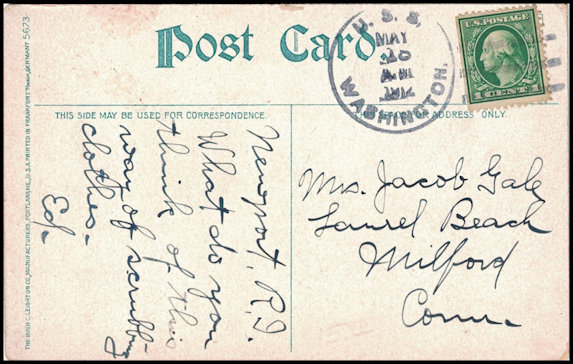 Post Card.
U.S.S.
MAY
10
A.M.
WASHINGTON.
U.S. POSTAGE
1 CENT 1
THIS SIDE MAY BE USED FOR CORRESPONDENCE.
FOR ADDRESS ONLY.
Newport, R.I.
What do you
think of this
way of scrubbing
clothes-
Ed-
Mrs. Jacob Gale
Laurel Beach
Milford
Conn
THE HUGH C. LEIGHTON CO., MANUFACTURERS, PORTLAND, ME., U.S.A. PRINTED IN FRANKFORT GERMANY 5673